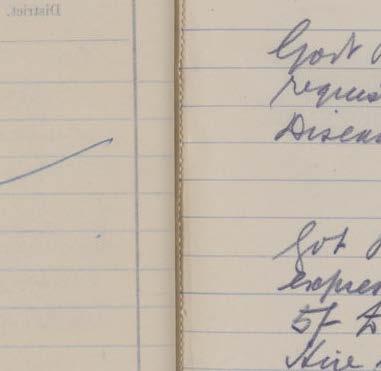 District.
Govt
reques
Diseas
Got
expres
57
Hire